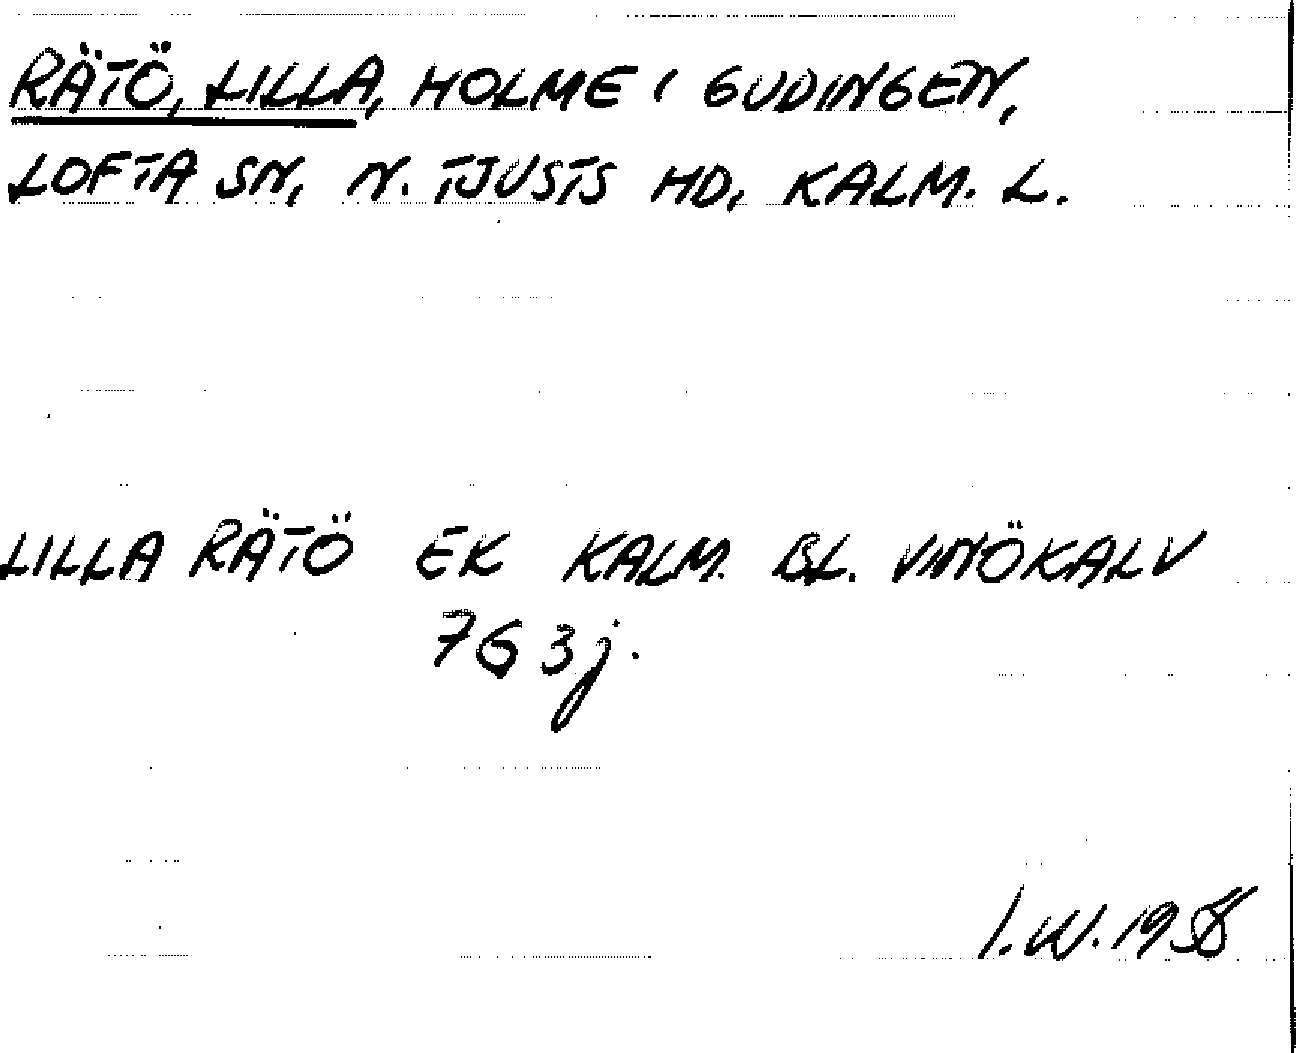 RÄTÖ, LILLA, HOLME I GUDINGEN,
LOFTA SN, N. TJUSTS HD, KALM. L.
LILLA RÄTÖ EK KALM. BL. VINÖKALV
763j.
I.W. 1958